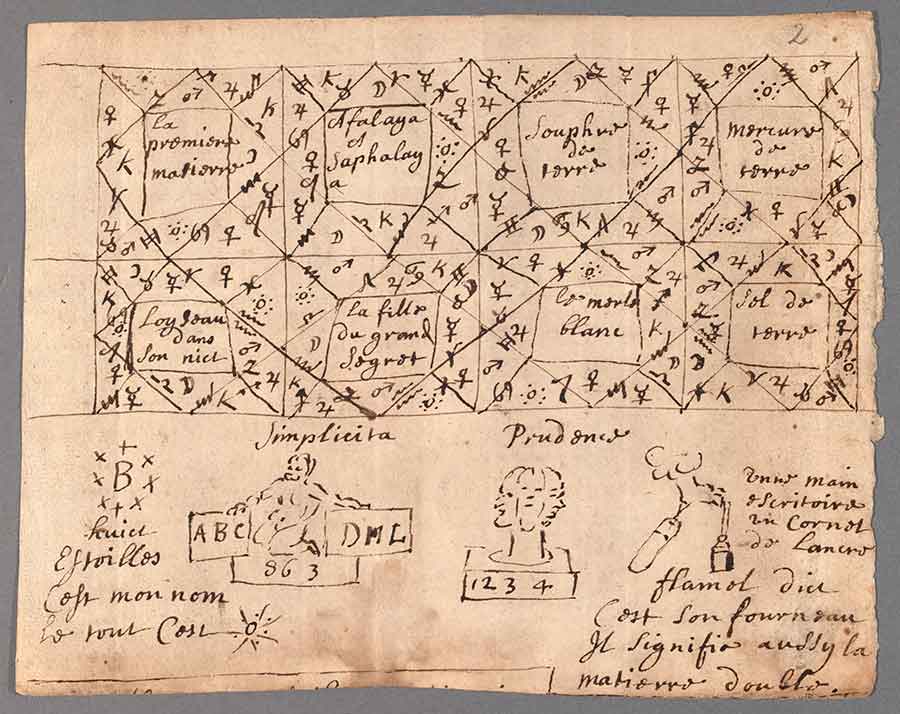 2
la
premiere
matierre
Afalaga
et
Saphalay
a
Souphre
de
terre
mercure
de
terre
Loyseau
dans
son nict
la fille
du grand
Segret
le merle
blanc
Sel de
terre
Simplicita
Prudence
B
huict
Estoilles
C'est mon nom
le tout C'est
ABC
DML
863
1234
unne main
escritoire
un Cornet
de Lancre
flamel dict
C'est son fourneau
Il signifie aussy la
matierre double.